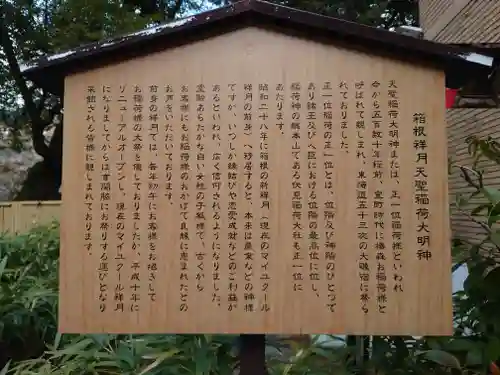 箱根祥月天聖稲荷大明神
天聖稲荷大明神または、正一位稲荷様といわれ
今から五百数十年程前、室町時代に横森お稲荷様と
呼ばれて親しまれ、東海道五十三次の大磯宿に祭ら
れておりました。
正一位稲荷の正一位とは、位階及び神階のひとつで
あり諸王及び人臣における位階の最高位に位し、
稲荷神の総本山である伏見稲荷大社も正一位に
あたります。
昭和二十八年に箱根の祥月(現在のマイユクール
祥月の前身)へ移居すると、本来は農業などの神様
ですが、いつしか縁結びや恋愛成就などのご利益が
あるといわれ、広く信仰されるようになりました。
霊験あらたかな白い女性の子狐様で、古くから
お客様にもお稲荷様のおかげで良縁に恵まれたとの
お声をいただいております。
前身の祥月では、毎年初午にお客様をお招きして
お稲荷様の大祭を催しておりましたが、平成十年に
リニューアルオープンし、現在のマイユクール祥月
になりましてからは古関脇にお祭りする運びとなり
来館される皆様に親しまれております。